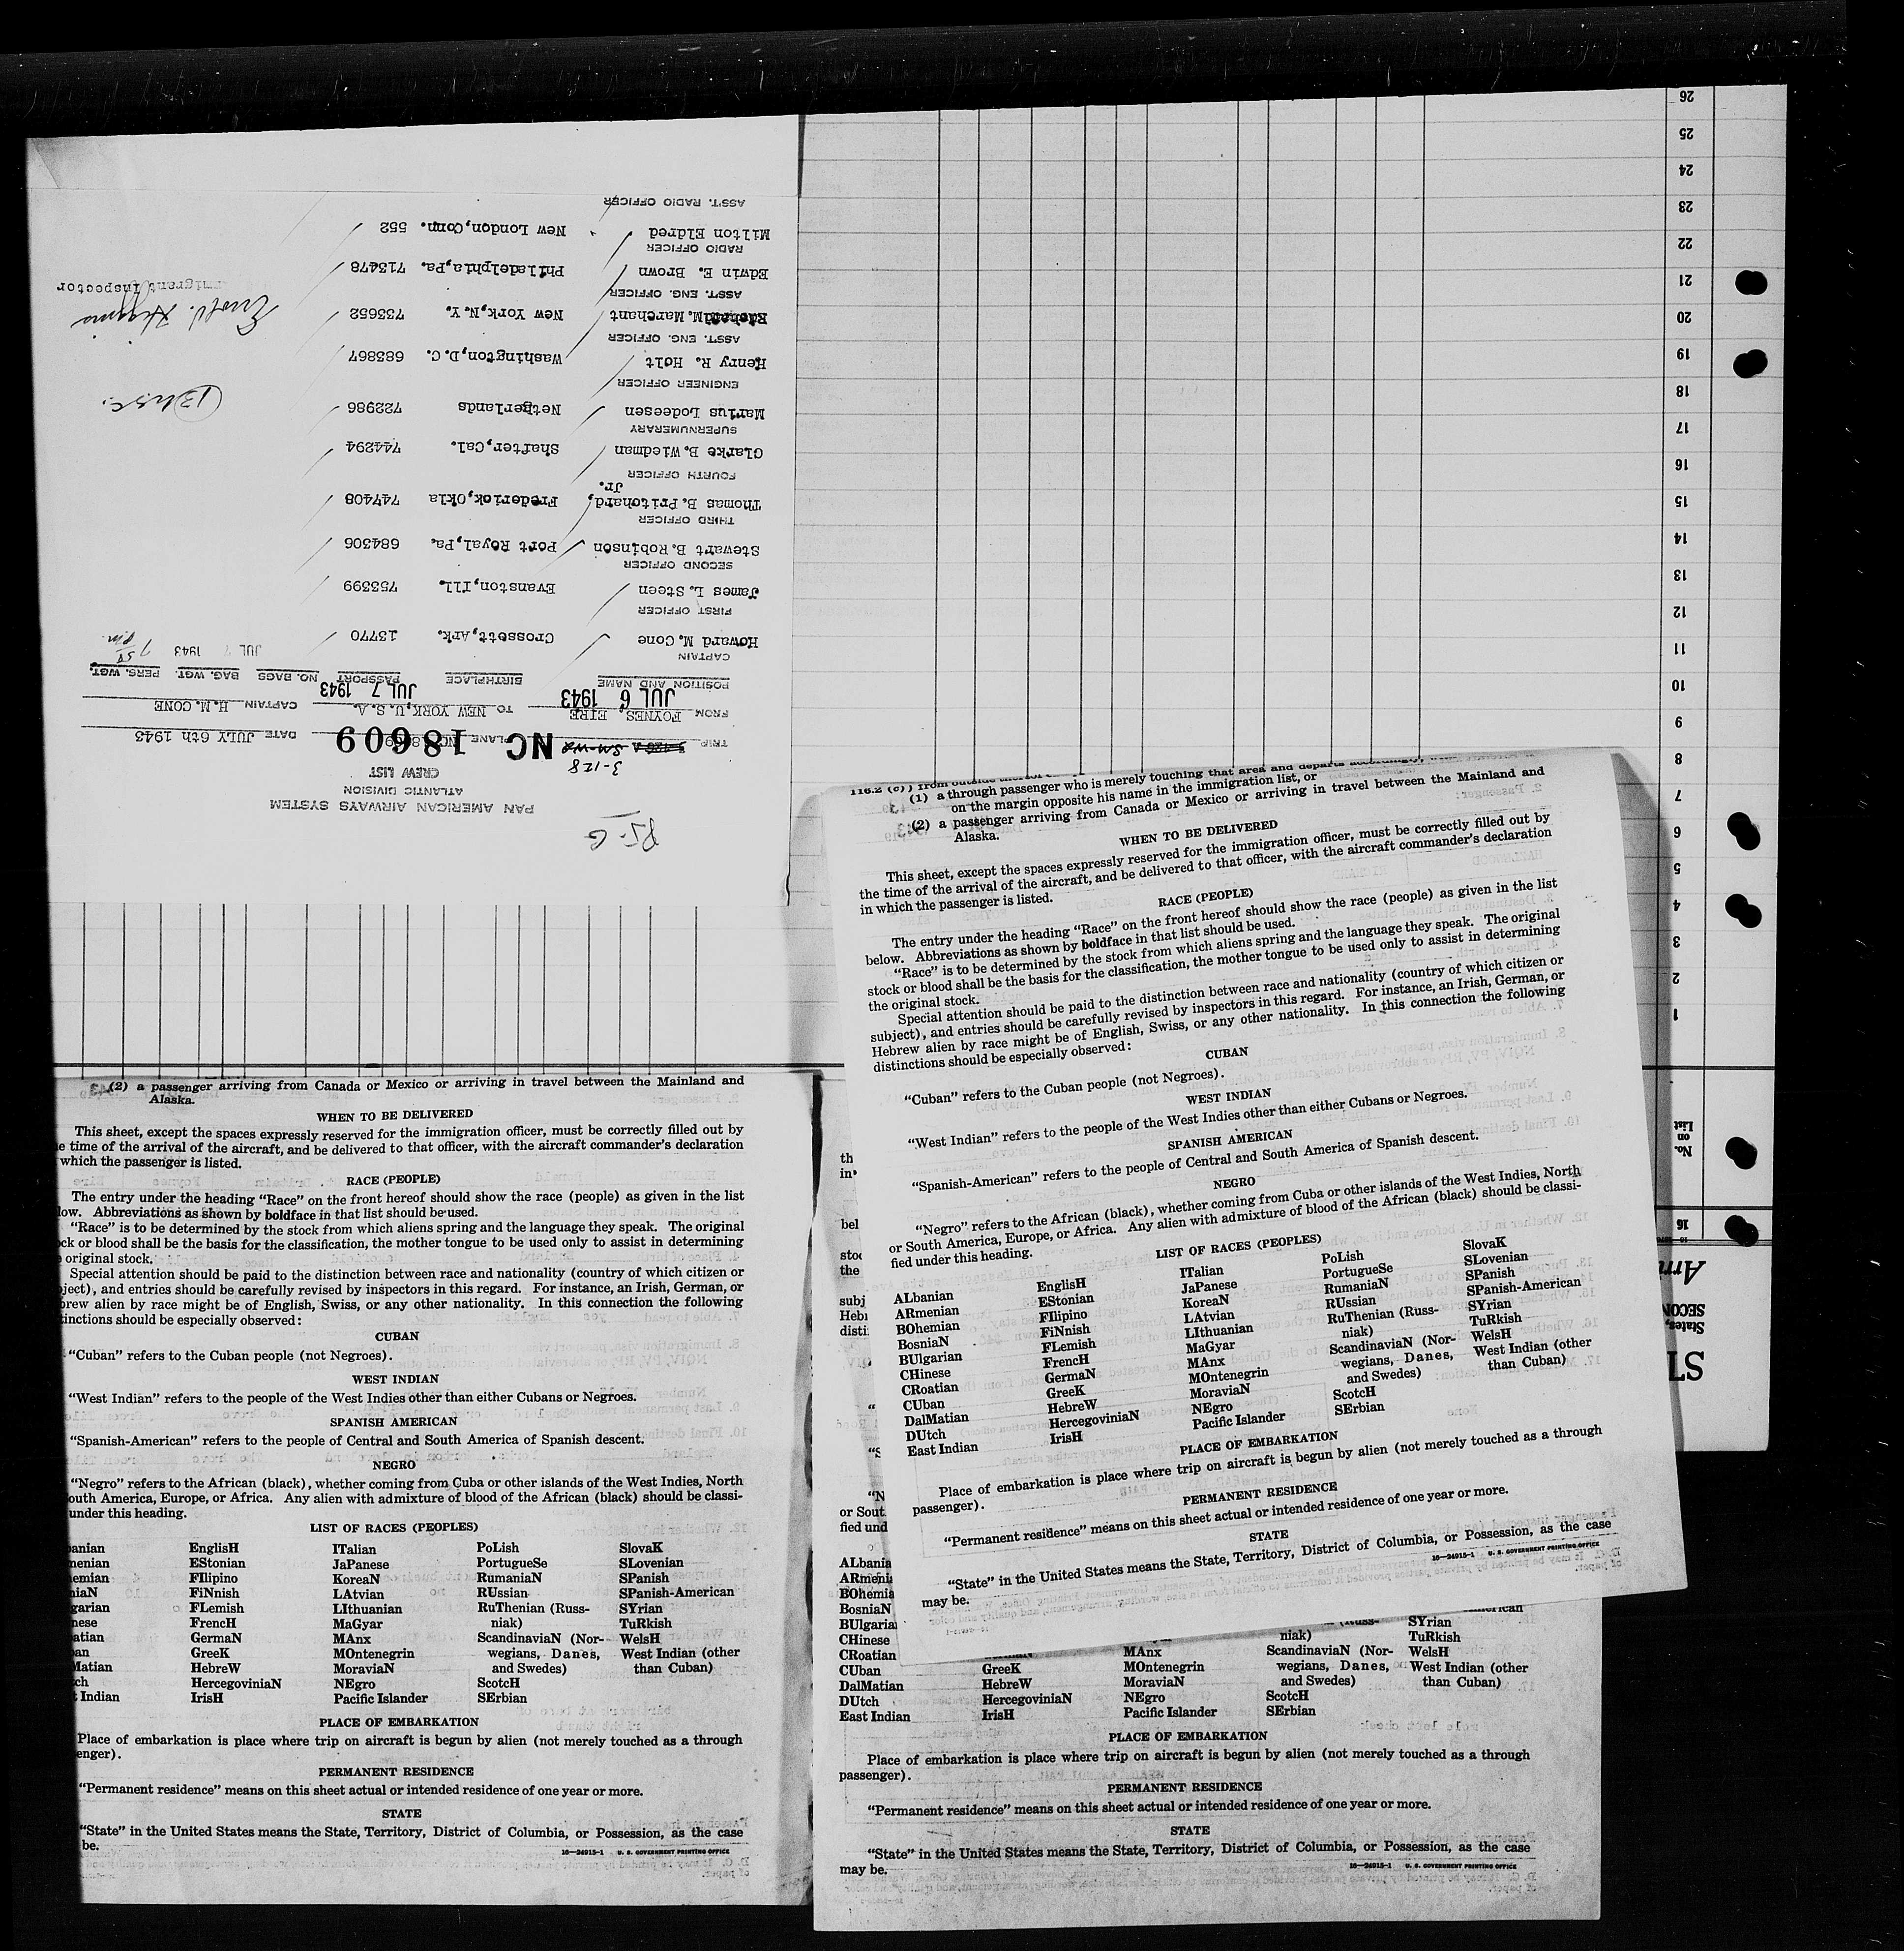 PAN AMERICAN AIRWAYS SYSTEM
ATLANTIC DIVISION
CREW LIST
3-1E8
TRIP PLANE NC 18609 DATE JULY 6th 1943
NC 18609
FROM FOYNES, EIRE TO NEW YORK, U.S.A. CAPTAIN H.M. CONE
JUL 6 1943 JUL 7 1943
POSITION AND NAME BIRTHPLACE PASSPORT NO. BAGS BAG. WGT. PERS. WGT.
JUL 7 1943
CAPTAIN
Howard M. Cone Crossett, Ark. 13770
FIRST OFFICER
James L. Steen Evanston, Ill. 753399
SECOND OFFICER
Stewart B. Robinson Port Royal, Pa. 684306
THIRD OFFICER
Thomas B. Pritchard, Jr. Frederick, Okla 747408
FOURTH OFFICER
Clarke B. Wiedman Shafter, Cal. 744294
SUPERNUMERARY
Marius Lodeesen Netgerlands 722986
ENGINEER OFFICER
Henry R. Holt Washington, D.C. 683867
ASST. ENG. OFFICER
M. Marchant New York, N.Y. 733652
ASST. ENG. OFFICER
Edwin E. Brown Philadelphia, Pa. 713478
RADIO OFFICER
Milton Eldred New London, Conn. 552
ASST. RADIO OFFICER
migrant Inspector
26
25
24
23
22
21
20
19
18
17
16
15
14
13
12
11
10
9
8
7
6
5
4
3
2
1
No. on List
16
SECON
States,
ST
(1) a through passenger who is merely touching that area and departs
on the margin opposite his name in the immigration list, or
(2) a passenger arriving from Canada or Mexico or arriving in travel between the Mainland and
Alaska.
WHEN TO BE DELIVERED
This sheet, except the spaces expressly reserved for the immigration officer, must be correctly filled out by
the time of the arrival of the aircraft, and be delivered to that officer, with the aircraft commander's declaration
in which the passenger is listed.
RACE (PEOPLE)
The entry under the heading “Race” on the front hereof should show the race (people) as given in the list
below. Abbreviations as shown by boldface in that list should be used.
“Race” is to be determined by the stock from which aliens spring and the language they speak. The original
stock or blood shall be the basis for the classification, the mother tongue to be used only to assist in determining
the original stock.
Special attention should be paid to the distinction between race and nationality (country of which citizen or
subject), and entries should be carefully revised by inspectors in this regard. For instance, an Irish, German, or
Hebrew alien by race might be of English, Swiss, or any other nationality. In this connection the following
distinctions should be especially observed:
CUBAN
“Cuban” refers to the Cuban people (not Negroes).
WEST INDIAN
“West Indian” refers to the people of the West Indies other than either Cubans or Negroes.
SPANISH AMERICAN
“Spanish-American” refers to the people of Central and South America of Spanish descent.
NEGRO
“Negro” refers to the African (black), whether coming from Cuba or other islands of the West Indies, North
or South America, Europe, or Africa. Any alien with admixture of blood of the African (black) should be classi-
fied under this heading.
LIST OF RACES (PEOPLES)
ALbanian EnglisH ITalian PoLish SlovaK
ARmenian EStonian JaPanese PortugueSe SLovenian
BOhemian FIlipino KoreaN RumaniaN SPanish
BosniaN FiNnish LAtvian RUssian SPanish-American
BUlgarian FLemish LIthuanian RuThenian (Russ- SYrian
CHinese FrencH MaGyar niak) TuRkish
CRoatian GermaN MAnx ScandinaviaN (Nor- WelsH
CUban GreeK MOntenegrin wegians, Danes, West Indian (other
DalMatian HebreW MoraviaN and Swedes) than Cuban)
DUtch HercegoviniaN NEgro ScotcH
East Indian IrisH Pacific Islander SErbian
PLACE OF EMBARKATION
Place of embarkation is place where trip on aircraft is begun by alien (not merely touched as a through
passenger).
PERMANENT RESIDENCE
“Permanent residence” means on this sheet actual or intended residence of one year or more.
STATE
“State” in the United States means the State, Territory, District of Columbia, or Possession, as the case
may be.
16—24915-1 U. S. GOVERNMENT PRINTING OFFICE
(2) a passenger arriving from Canada or Mexico or arriving in travel between the Mainland and
Alaska.
WHEN TO BE DELIVERED
This sheet, except the spaces expressly reserved for the immigration officer, must be correctly filled out by
e time of the arrival of the aircraft, and be delivered to that officer, with the aircraft commander's declaration
which the passenger is listed.
RACE (PEOPLE)
The entry under the heading “Race” on the front hereof should show the race (people) as given in the list
low. Abbreviations as shown by boldface in that list should be used.
“Race” is to be determined by the stock from which aliens spring and the language they speak. The original
ck or blood shall be the basis for the classification, the mother tongue to be used only to assist in determining
original stock.
Special attention should be paid to the distinction between race and nationality (country of which citizen or
ject), and entries should be carefully revised by inspectors in this regard. For instance, an Irish, German, or
brew alien by race might be of English, Swiss, or any other nationality. In this connection the following
tinctions should be especially observed:
CUBAN
“Cuban” refers to the Cuban people (not Negroes).
WEST INDIAN
“West Indian” refers to the people of the West Indies other than either Cubans or Negroes.
SPANISH AMERICAN
“Spanish-American” refers to the people of Central and South America of Spanish descent.
NEGRO
“Negro” refers to the African (black), whether coming from Cuba or other islands of the West Indies, North
outh America, Europe, or Africa. Any alien with admixture of blood of the African (black) should be classi-
under this heading.
LIST OF RACES (PEOPLES)
anian EnglisH ITalian PoLish SlovaK
menian EStonian JaPanese PortugueSe SLovenian
emian FIlipino KoreaN RumaniaN SPanish
niaN FiNnish LAtvian RUssian SPanish-American
garian FLemish LIthuanian RuThenian (Russ- SYrian
nese FrencH MaGyar niak) TuRkish
atian GermaN MAnx ScandinaviaN (Nor- WelsH
an GreeK MOntenegrin wegians, Danes, West Indian (other
Matian HebreW MoraviaN and Swedes) than Cuban)
ch HercegoviniaN NEgro ScotcH
t Indian IrisH Pacific Islander SErbian
PLACE OF EMBARKATION
Place of embarkation is place where trip on aircraft is begun by alien (not merely touched as a through
enger).
PERMANENT RESIDENCE
“Permanent residence” means on this sheet actual or intended residence of one year or more.
STATE
“State” in the United States means the State, Territory, District of Columbia, or Possession, as the case
be.
16—24915-1 U. S. GOVERNMENT PRINTING OFFICE
th
in
bel
stoc
the
subj
Heb
disti
“N
or Sout
fied und
ALbania
ARmeni
BOhemia
BosniaN
BUlgaria SYrian
CHinese niak) TuRkish
CRoatian MAnx ScandinaviaN (Nor- WelsH
CUban GreeK MOntenegrin wegians, Danes, West Indian (other
DalMatian HebreW MoraviaN and Swedes) than Cuban)
DUtch HercegoviniaN NEgro ScotcH
East Indian IrisH Pacific Islander SErbian
PLACE OF EMBARKATION
Place of embarkation is place where trip on aircraft is begun by alien (not merely touched as a through
passenger).
PERMANENT RESIDENCE
“Permanent residence” means on this sheet actual or intended residence of one year or more.
STATE
“State” in the United States means the State, Territory, District of Columbia, or Possession, as the case
may be.
16—24915-1 U. S. GOVERNMENT PRINTING OFFICE